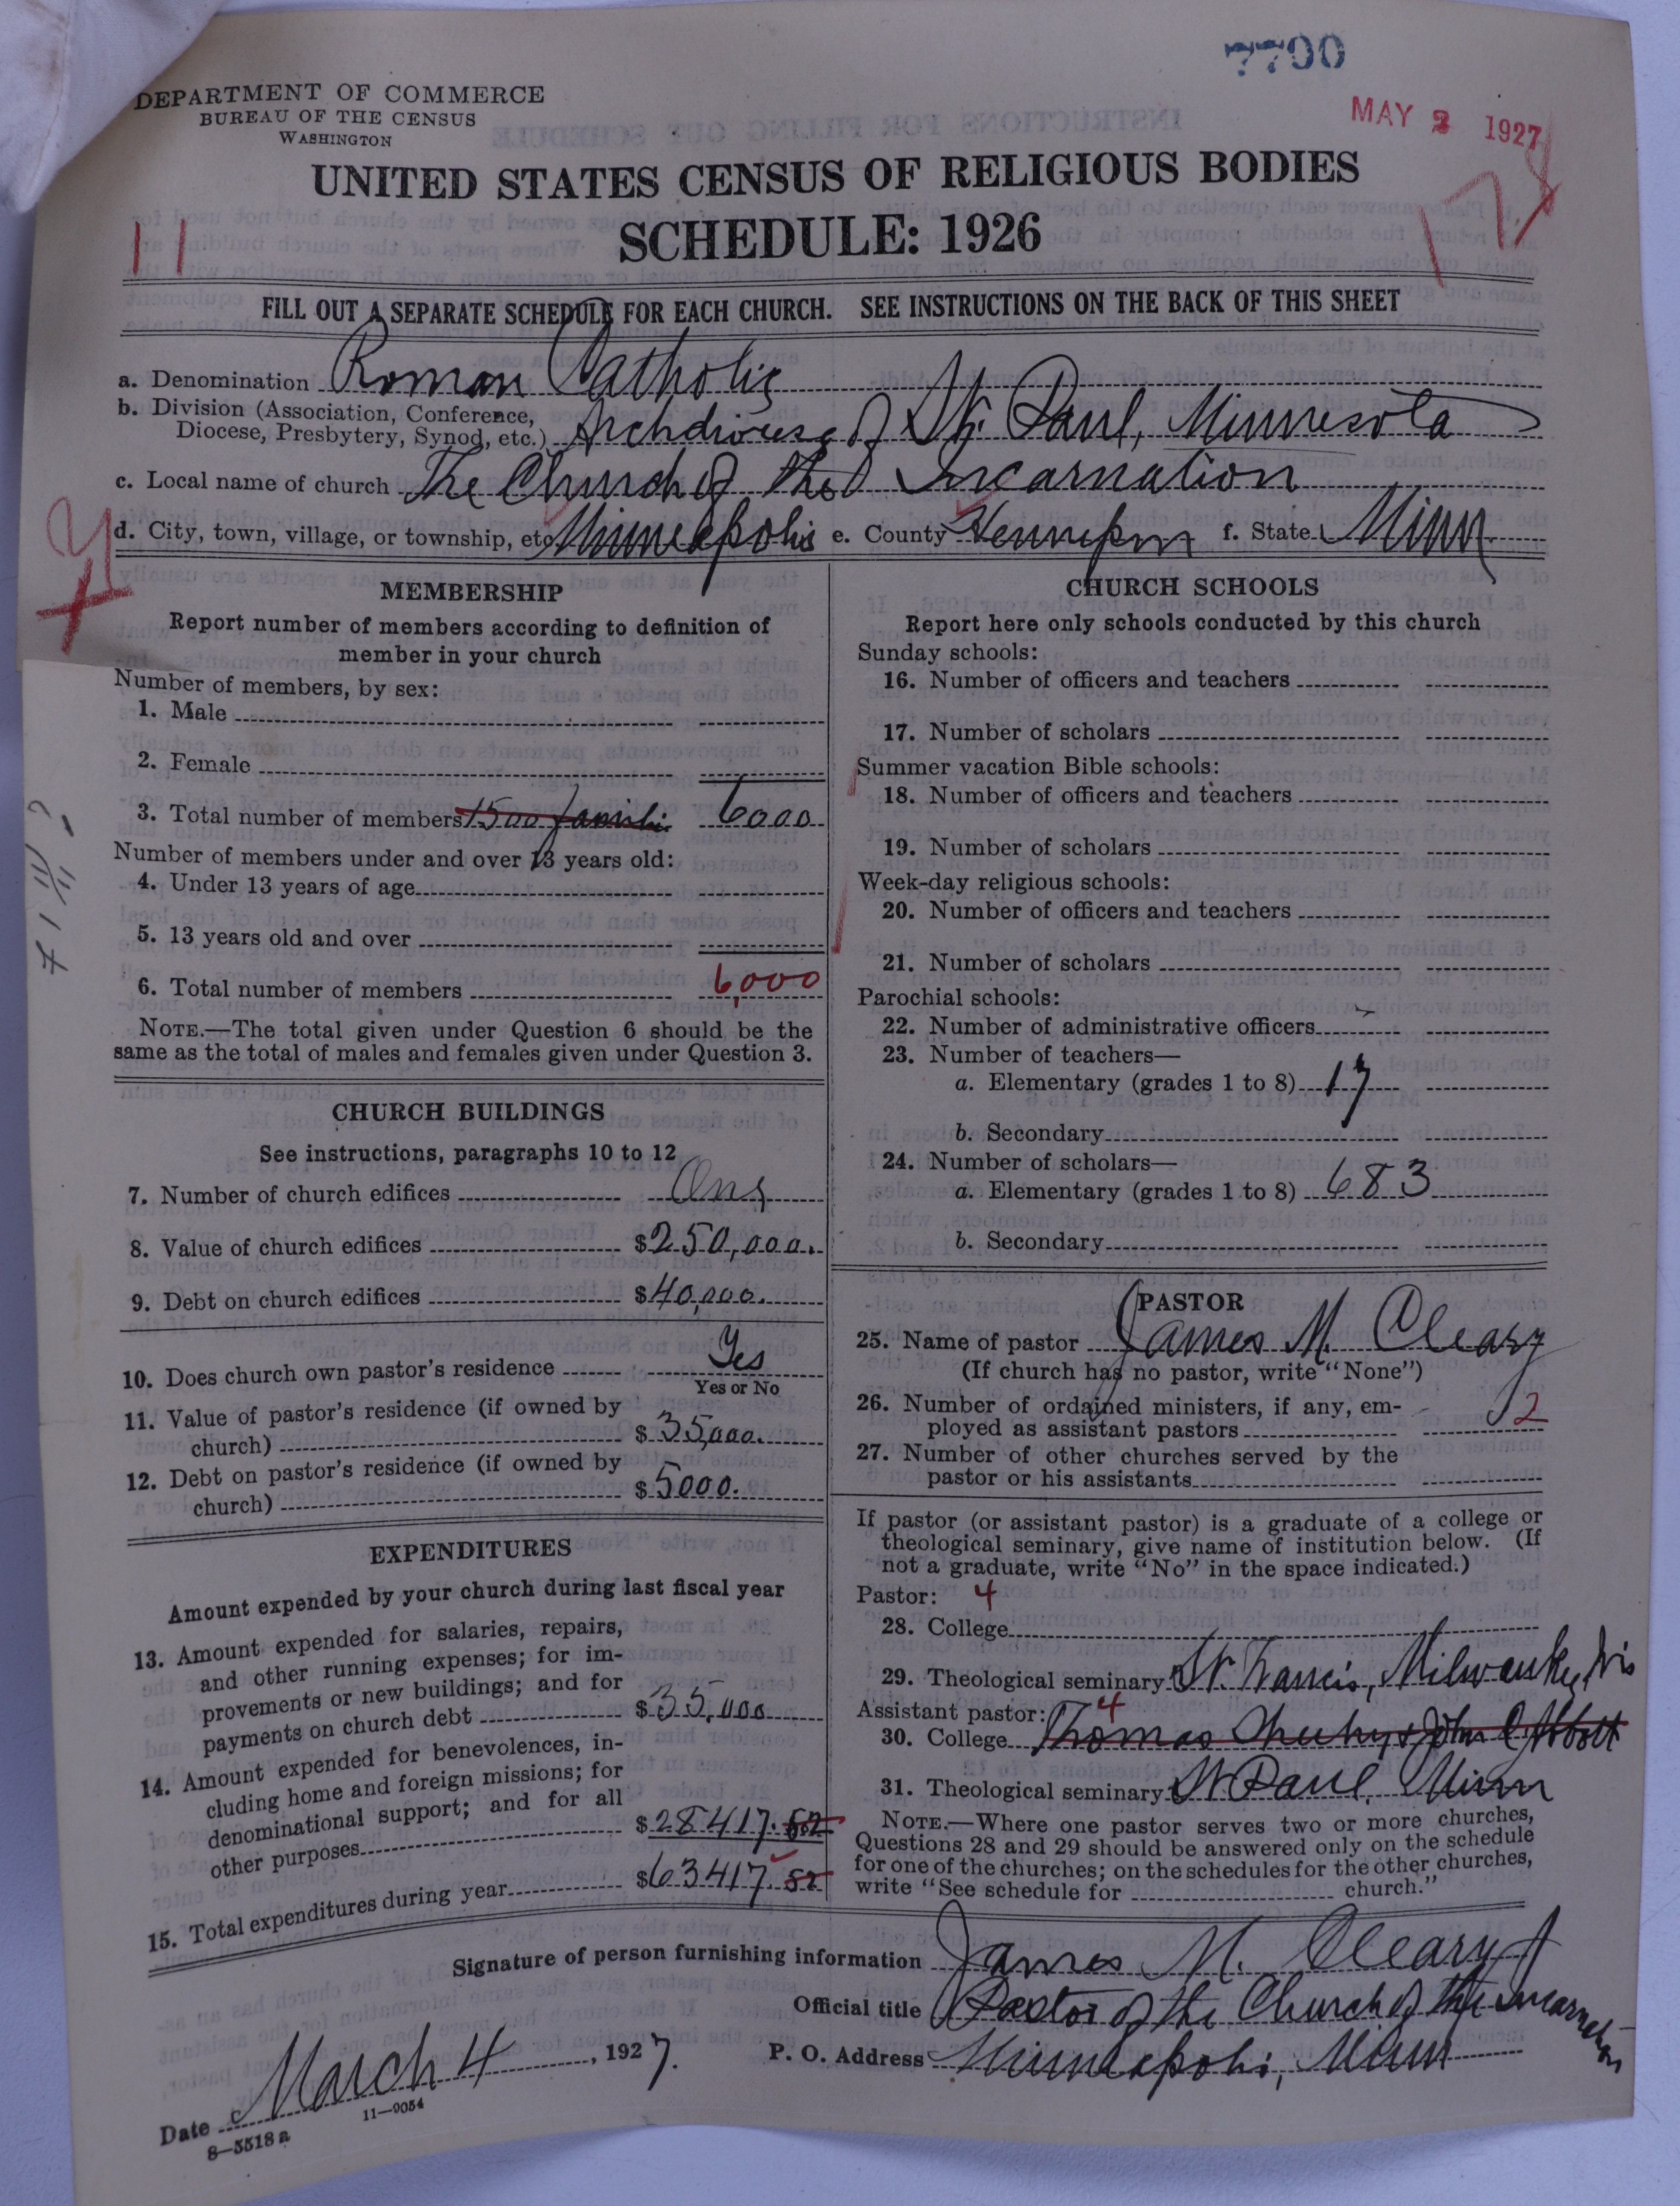 7790
MAY 2 1927
DEPARTMENT OF COMMERCE
BUREAU OF THE CENSUS
WASHINGTON
UNITED STATES CENSUS OF RELIGIOUS BODIES
SCHEDULE: 1926
11
FILL OUT A SEPARATE SCHEDULE FOR EACH CHURCH. SEE INSTRUCTIONS ON THE BACK OF THIS SHEET
a. Denomination Roman Catholic
b. Division (Association, Conference,
Diocese, Presbytery, Synod, etc.) Archdiocese of St. Paul, Minnesota
c. Local name of church The Church of the Incarnation
d. City, town, village, or township, etc. Minneapolis e. County Hennepin f. State Minn.
MEMBERSHIP
Report number of members according to definition of
member in your church
Number of members, by sex:
1. Male
2. Female
3. Total number of members 1500 families 6000
Number of members under and over 13 years old:
4. Under 13 years of age
5. 13 years old and over
6. Total number of members 6,000
NOTE.—The total given under Question 6 should be the
same as the total of males and females given under Question 3.
CHURCH BUILDINGS
See instructions, paragraphs 10 to 12
7. Number of church edifices One
8. Value of church edifices $250,000.
9. Debt on church edifices $40,000.
10. Does church own pastor's residence Yes
Yes or No
11. Value of pastor's residence (if owned by
church) $35,000.
12. Debt on pastor's residence (if owned by
church) $5000.
EXPENDITURES
Amount expended by your church during last fiscal year
13. Amount expended for salaries, repairs,
and other running expenses; for im-
provements or new buildings; and for
payments on church debt $35,000
14. Amount expended for benevolences, in-
cluding home and foreign missions; for
denominational support; and for all
other purposes $28417.52
15. Total expenditures during year $63417.52
CHURCH SCHOOLS
Report here only schools conducted by this church
Sunday schools:
16. Number of officers and teachers
17. Number of scholars
Summer vacation Bible schools:
18. Number of officers and teachers
19. Number of scholars
Week-day religious schools:
20. Number of officers and teachers
21. Number of scholars
Parochial schools:
22. Number of administrative officers
23. Number of teachers—
a. Elementary (grades 1 to 8) 17
b. Secondary
24. Number of scholars—
a. Elementary (grades 1 to 8) 683
b. Secondary
PASTOR
25. Name of pastor James M. Cleary
(If church has no pastor, write "None")
26. Number of ordained ministers, if any, em-
ployed as assistant pastors 2
27. Number of other churches served by the
pastor or his assistants
If pastor (or assistant pastor) is a graduate of a college or
theological seminary, give name of institution below. (If
not a graduate, write "No" in the space indicated.)
Pastor: 4
28. College
29. Theological seminary St. Francis, Milwaukee, Wis
Assistant pastor: 4
30. College Thomas Sheehy & John C Abbott
31. Theological seminary St Paul, Minn
NOTE.—Where one pastor serves two or more churches,
Questions 28 and 29 should be answered only on the schedule
for one of the churches; on the schedules for the other churches,
write "See schedule for church."
Signature of person furnishing information James M. Cleary
Official title Pastor of the Church of the Incarnation
P. O. Address Minneapolis, Minn
Date March 4, 1927.
11—9054
8—5518 a